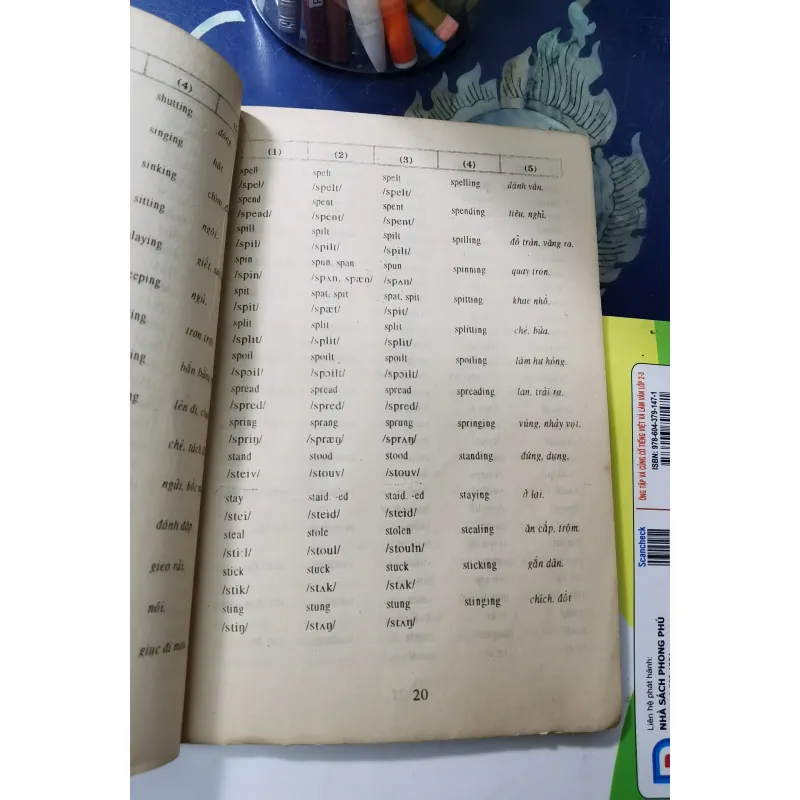 (4)
shutting đóng
singing hát
sinking
sitting
ngủ.
lên đi,
đánh đập
gieo rải.
nói.
(1) (2) (3) (4) (5)
spell spelt spelt spelling đánh vần.
/spel/ /spelt/ /spelt/
spend spent spent spending tiêu, nghỉ.
/spend/ /spent/ /spent/
spill spilt spilt spilling đổ tràn, văng ra.
/spil/ /spilt/ /spilt/
spin spun, span spun spinning quay tròn.
/spin/ /spʌn, spæn/ /spʌn/
spit spat, spit spat, spit spitting khạc nhổ.
/spit/ /spæt/ /spit/
split split split splitting chẻ, bửa.
/split/ /split/ /split/
spoil spoilt spoilt spoiling làm hư hỏng.
/spɔil/ /spɔilt/ /spɔilt/
spread spread spread spreading lan, trải ra.
/spred/ /spred/ /spred/
spring sprang sprung springing vùng, nhảy vọt.
/spriŋ/ /spræŋ/ /sprʌŋ/
stand stood stood standing đứng, dựng.
/steiv/ /stouv/ /stouv/
stay staid, -ed staid, -ed staying ở lại.
/stei/ /steid/ /steid/
steal stole stolen stealing ăn cắp, trộm.
/sti:l/ /stoul/ /stouln/
stick stuck stuck sticking gắn dán.
/stik/ /stʌk/ /stʌk/
sting stung stung stinging chích, đốt
/stiŋ/ /stʌŋ/ /stʌŋ/
20
ÔNG TẬP VÀ CỦNG CỐ TIẾNG VIỆT VÀ LÀM VĂN LỚP 2-3
ISBN: 978-604-379-147-1
Scancheck
Liên hệ phát hành:
NHÀ SÁCH PHONG PHÚ